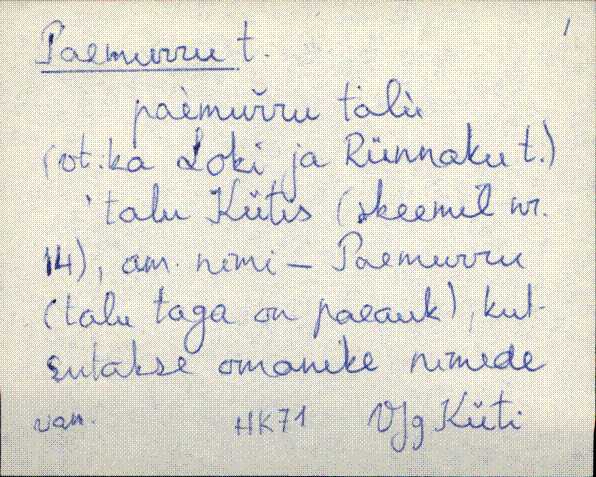 1
Paemurru t.
pàemuřru tàlù
(vt. ka Loki ja Rünnaku t.)
'talu Kütis (skeemil nr.
14), am. nimi – Paemurru
(talu taga on paeauk), kut-
sutakse omanike nimede
van. HK71 VJg Küti